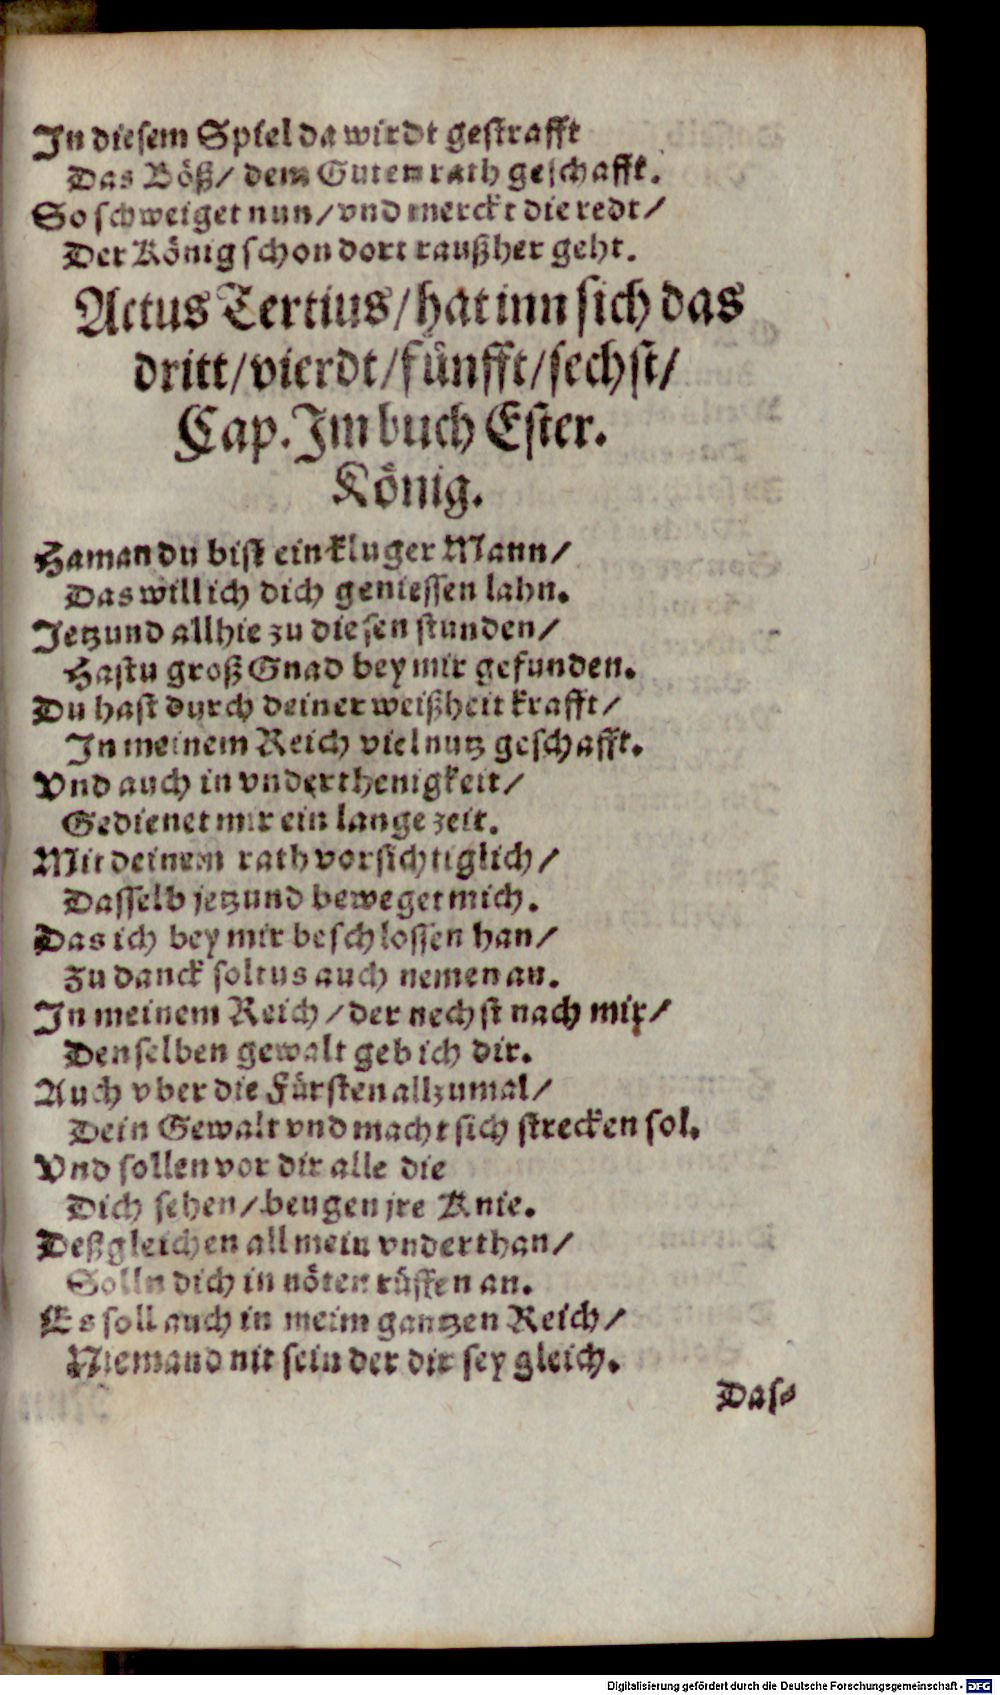 In diesem Spiel da wirdt gestrafft
Das Böß/ dem Guten rath geschafft.
So schweiget nun/ vnd merckt die redt/
Der König schon dort raußher geht.
Actus Tertius/ hat inn sich das
dritt/ vierdt/ fünfft/ sechst/
Cap. Im buch Ester.
König.
Haman du bist ein kluger Mann/
Das will ich dich geniessen lahn.
Jetzund allhie zu diesen stunden/
Hastu groß Gnad bey mir gefunden.
Du hast durch deiner weißheit krafft/
In meinem Reich viel nutz geschafft.
Vnd auch in vnderthenigkeit/
Gedienet mir ein lange zeit.
Mit deinem rath vorsichtiglich/
Dasselb jetzund beweget mich.
Das ich bey mir beschlossen han/
Zu danck soltus auch nemen an.
In meinem Reich/ der nechst nach mir/
Denselben gewalt geb ich dir.
Auch vber die Fürsten allzumal/
Dein Gewalt vnd macht sich strecken sol.
Vnd sollen vor dir alle die
Dich sehen/ beugen jre Knie.
Deßgleichen all mein vnderthan/
Solln dich in nöten rüffen an.
Es soll auch in meim gantzen Reich/
Niemand nit sein der dir sey gleich.
Das-
Digitalisierung gefördert durch die Deutsche Forschungsgemeinschaft - DFG